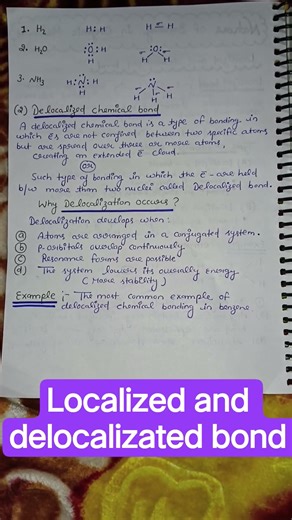 1. H₂ H:H H–H
2. H₂O H:O:H
3. NH₃ H:N:H
(2) Delocalized chemical bond
A delocalized chemical bond is a type of bonding in
which es are not confined between two specific atoms
but are spread over three or more atoms,
creating an extended e⁻ cloud.
OR
Such type of bonding in which the e⁻ are held
b/w more than two nuclei called Delocalized bond.
Why Delocalization occurs?
Delocalization develops when:
(a) Atoms are arranged in a conjugated system.
(b) p-orbitals overlap continuously
(c) Resonance forms are possible
(d) The system lowers its overally energy.
(More stability)
Example :- The most common example of
delocalized chemical bonding in benzene
Localized and
delocalizated bond